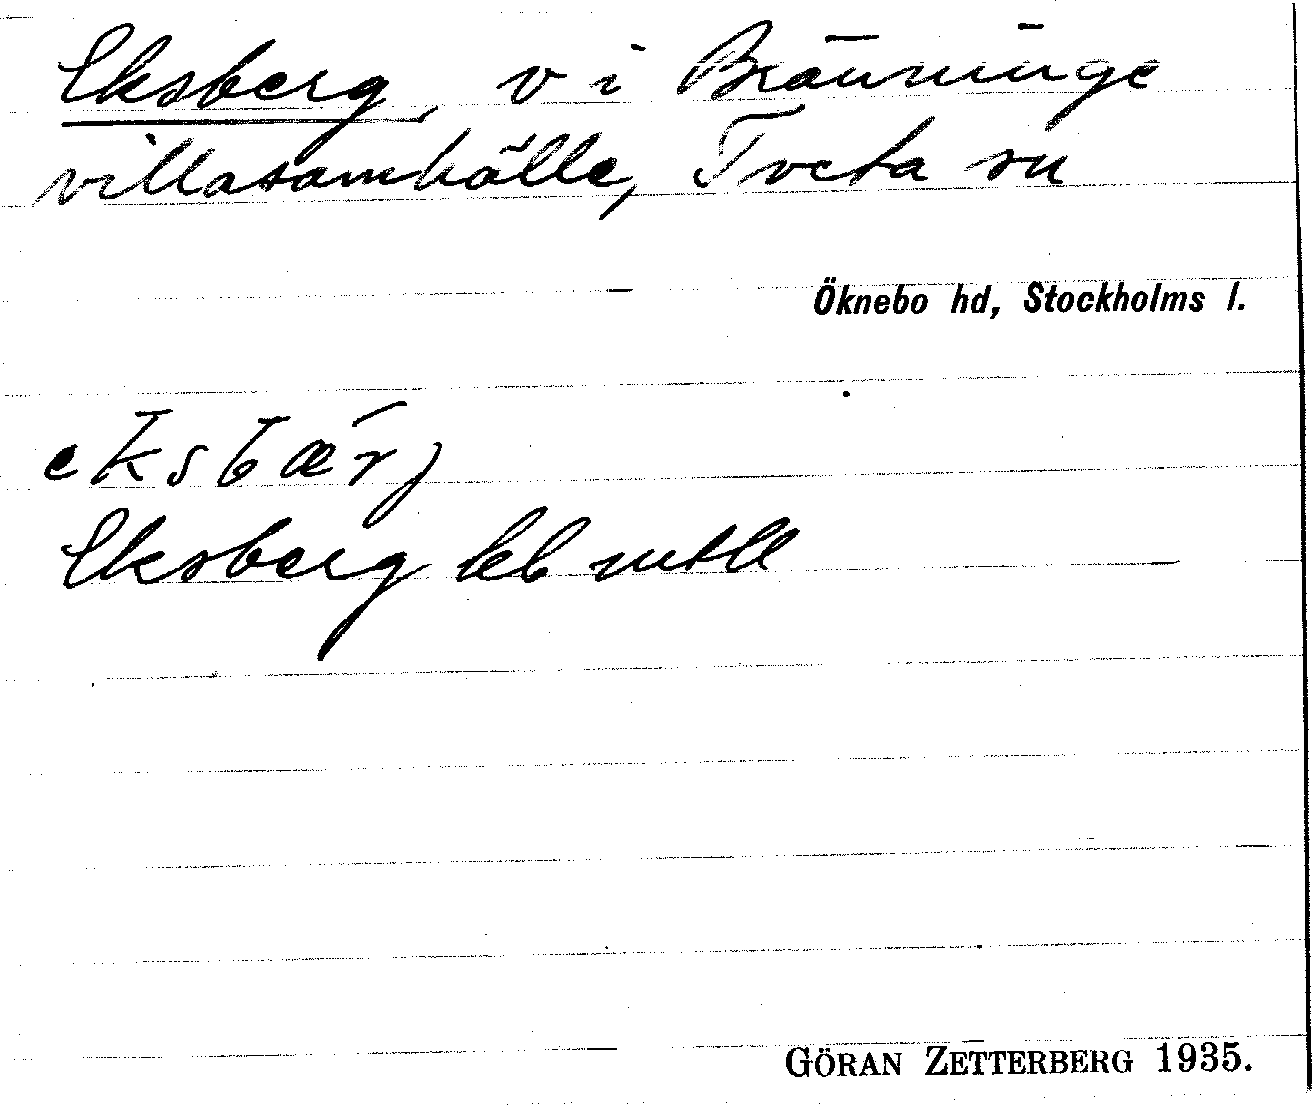 Eksberg, v i Bränninge
villasamhälle, Tveta sn
Öknebo hd, Stockholms l.
eksbærj
Eksberg leb mtll
GÖRAN ZETTERBERG 1935.